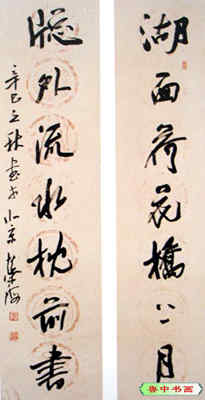 湖面荷花橋上月
牕外流水枕前書
辛巳之秋書於北京
鲁中书画